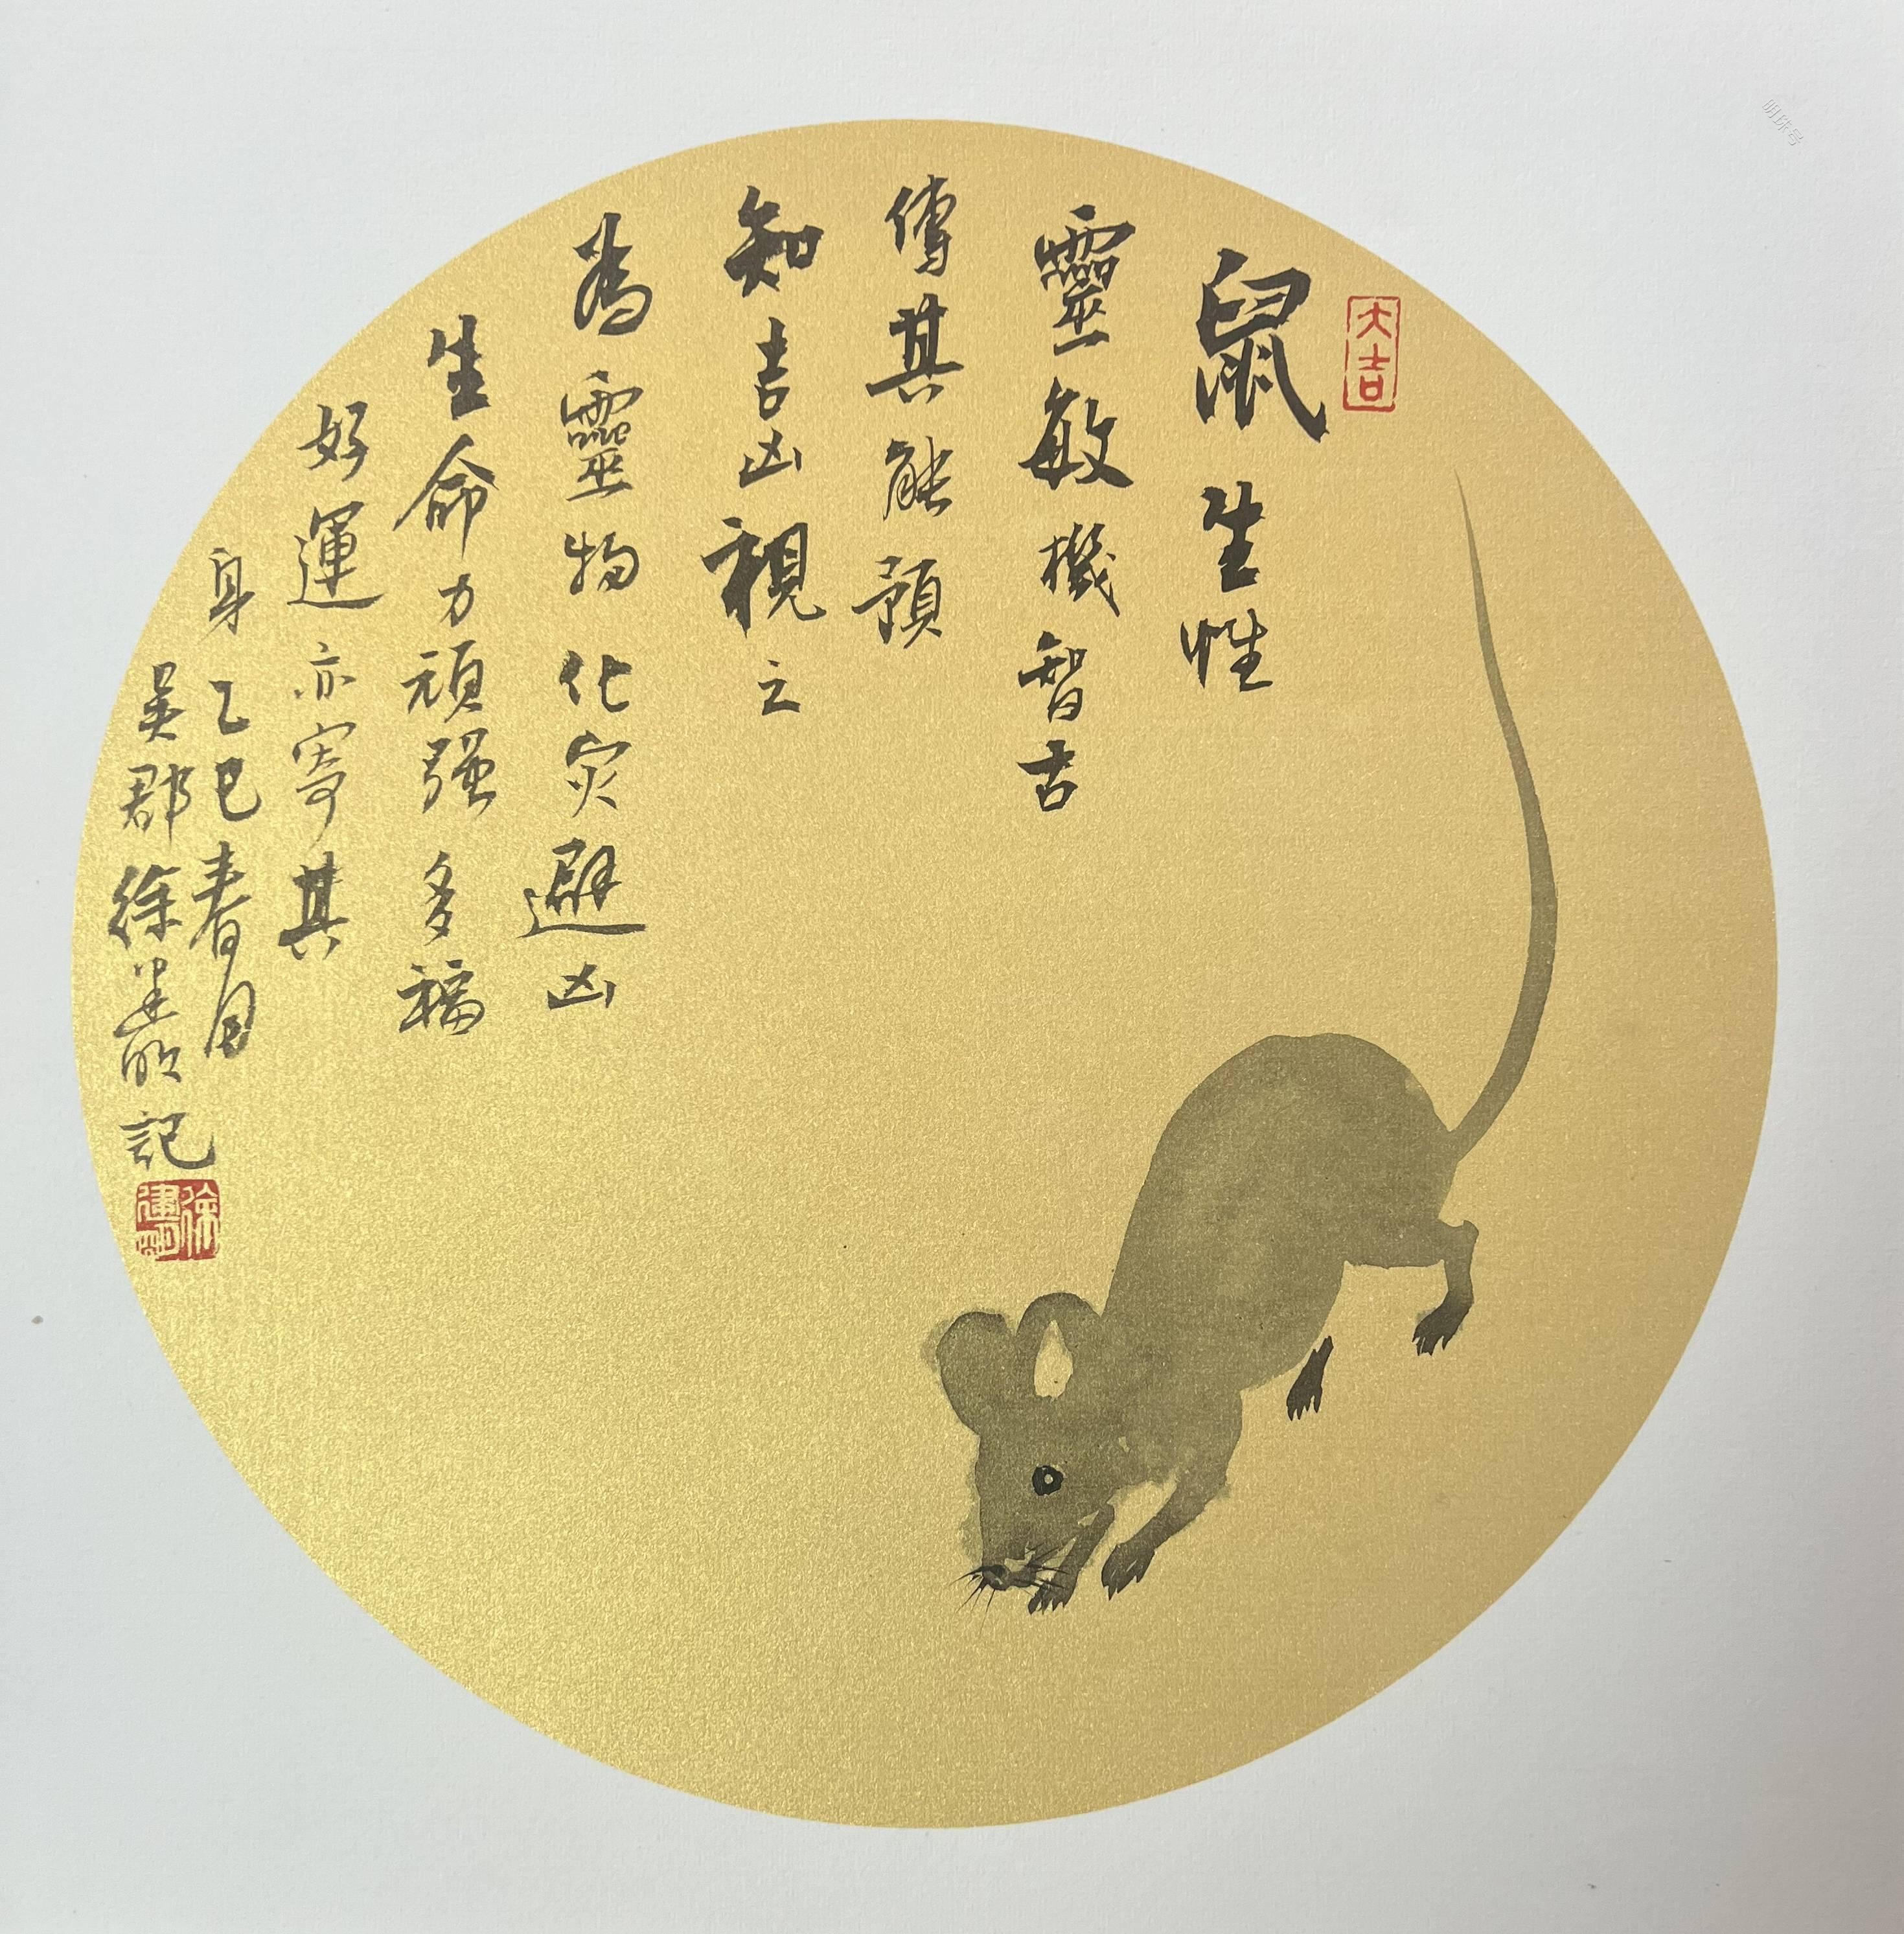 大吉
鼠生性
靈敏機智古
傳其能預
知吉凶視之
為靈物化灾避凶
生命力頑强多福
好運亦寄其
身乙巳春月
吳郡徐建明記
徐建明
明珠号